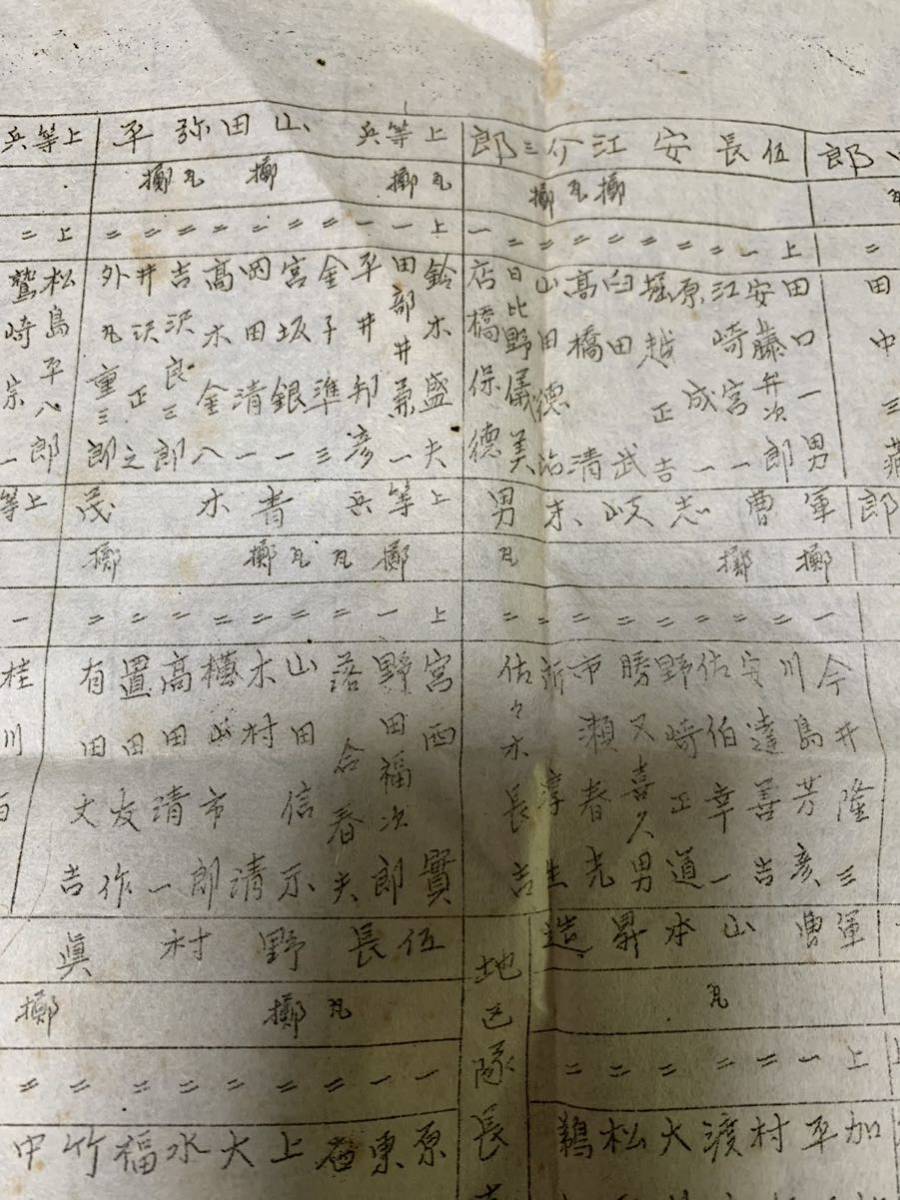 伍長安江介三郎
擲瓦擲
上一二二二二二二二一
田口一男
安藤弁次郎
江崎宮一
原成一
堀越正吉
臼田武
高橋清
山田德治
日比野儀美
店橋保德
上等兵山田弥平
瓦擲擲瓦擲
上一一二二二二二二二
鈴木盛夫
田部井兼一
平井邦彦
金子準三
宮坂銀一
岡田清一
高木金八
吉沢良三郎
井沢正之
外丸重三郎
上等兵
上二
松島平八郎
鷲崎宗一
郎
田中三
軍曹志岐木男
擲擲瓦
一二二二二二二二二
今井隆三
川島芳彦
安達善吉
佐伯幸一
野崎正道
勝又喜久男
市瀬春光
淳生
佐々木長吉
上等兵青木茂
擲瓦瓦擲擲
上一二二二二二二二
宮西實
野田福次郎
落合春夫
山田信示
木村清
山市郎
高田清一
置田友作
有田丈吉
上等
一
桂川
軍曹山本昇造
瓦
上一二二二二二
加
平
村
渡
大
松
鵜
地区隊長
伍長野村眞
瓦擲擲
一一二二二二二二二
原
東
上
大
水
福
竹
中